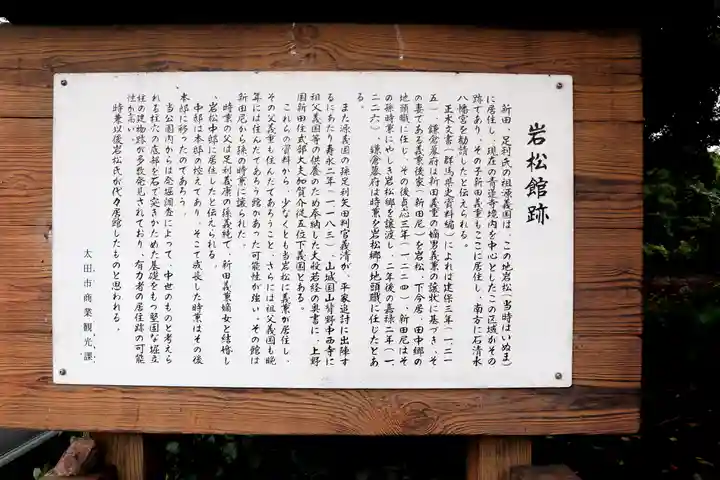 岩松館跡
新田、足利氏の祖源義国は、この地岩松(当時はいぬま)
に居住し、現在の青蓮寺境内を中心としたこの区域がその
跡であり、その子新田義重もここに居住し、南方に石清水
八幡宮を勧請したと伝えられる。
正木文書(群馬県史資料編)によれば建保三年(一二一
五)、鎌倉幕府は新田義重の嫡男義兼の譲状に基づき、そ
の妻である義兼後家(新田尼)を岩松、下今居、田中郷の
地頭職に任じ、その後貞応三年(一二二四)、新田尼はそ
の孫時兼にやしき岩松郷を譲渡し、二年後の嘉禄二年(一
二二六)、鎌倉幕府は時兼を岩松郷の地頭職に任じたとあ
る。
また源義国の孫足利矢田判官義清が、平家追討に出陣す
るにあたり寿永二年(一一八三)、山城国山科野中西寺に
祖父義国等の供養のため奉納した大般若経の奥書に、上野
国新田住式部大夫加賀介従五位下義国とある。
これらの資料から、少なくとも当岩松に義兼が居住し、
その父義重も住んであろうこと、さらには祖父義国も晩
年には住んだであろう館があった可能性が強い。その館は
新田尼から孫の時兼に譲られた。
時兼の父は足利義康の孫義純で、新田義兼嫡女と結婚し
、岩松中邸に居住したと伝えられる。
中邸は本邸の控えであり、そこで成長した時兼はその後
本邸に移ったのであろう。
当公園内からは発掘調査によって、中世のものと考えら
れる柱穴の底部を石で突きかためた基礎をもつ堅固な掘立
柱の建物跡が多数発見されており、有力者の居住跡の可能
性が高い。
時兼以後岩松氏が代々居館したものと思われる。
太田市商業観光課